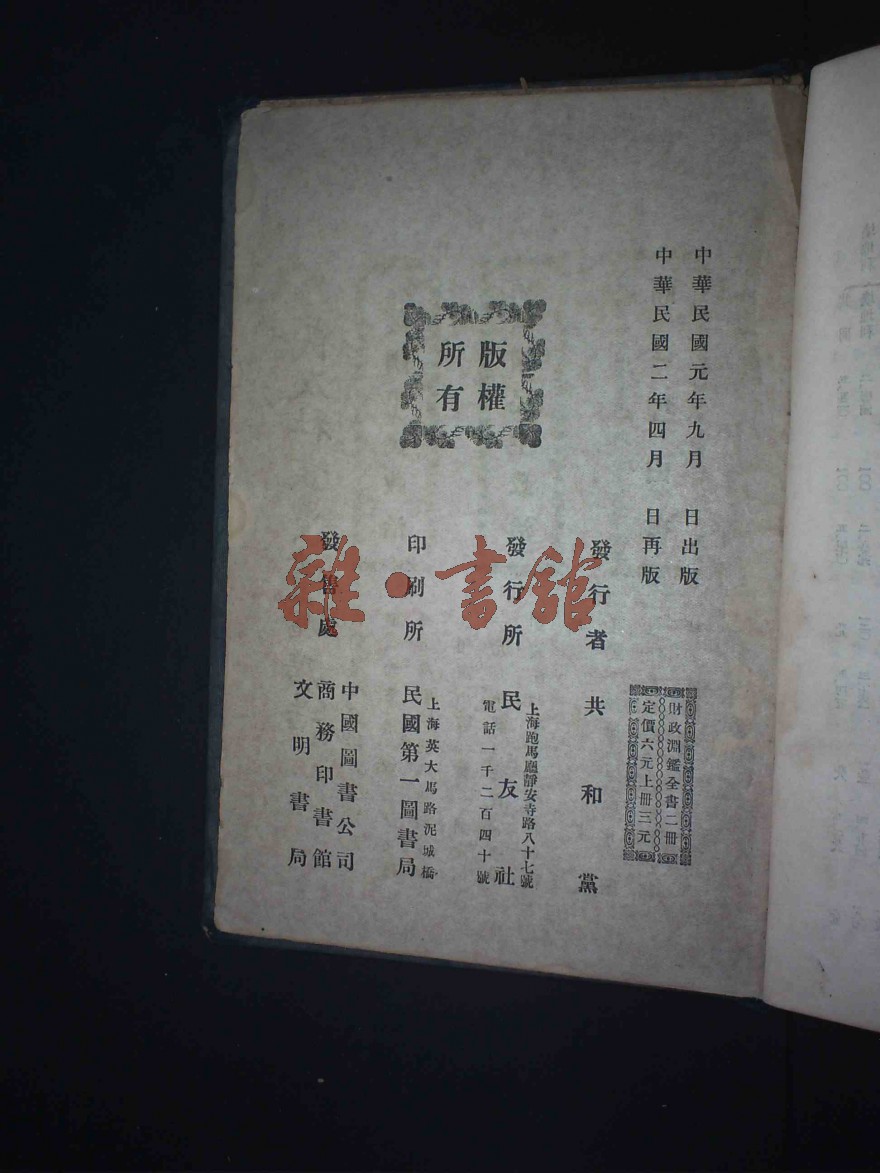 中華民國元年九月　日出版
中華民國二年四月　日再版
財政淵鑑全書二冊
定價六元上冊三元
版權
所有
發行者　共和黨
發行所　民友社
上海跑馬廳靜安寺路八十七號
電話一千二百四十號
印刷所　民國第一圖書局
上海英大馬路泥城橋
發售處
中國圖書公司
商務印書館
文明書局
雜·書館